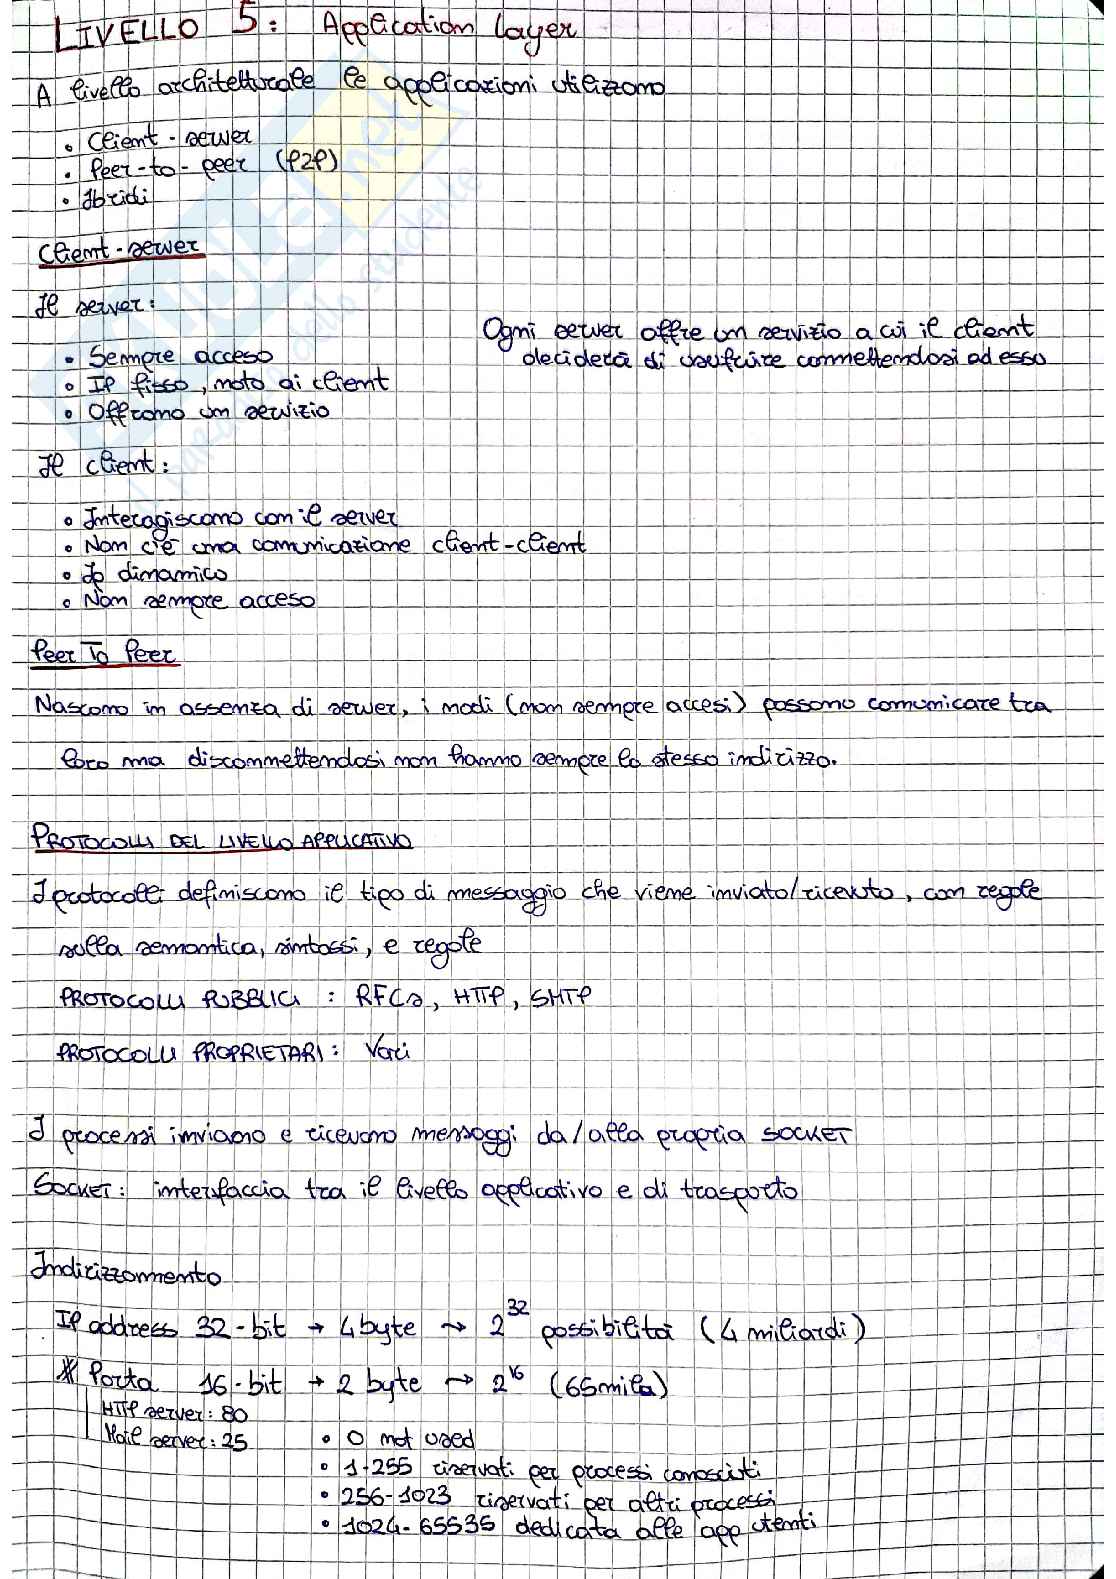 LIVELLO 5: Application layer
A livello architetturale le applicazioni utilizzano
• Client-server
• Peer-to-peer (P2P)
• Ibridi
Client-server
Il server:
• Sempre acceso
• IP fisso, noto ai client
• Offrono un servizio
Ogni server offre un servizio a cui il client
deciderà di usufruire connettendosi ad esso
Il client:
• Interagiscono con il server
• Non c'è una comunicazione client-client
• Ip dinamico
• Non sempre acceso
Peer To Peer
Nascono in assenza di server, i nodi (non sempre accesi) possono comunicare tra
loro ma disconnettendosi non hanno sempre lo stesso indirizzo.
PROTOCOLLI DEL LIVELLO APPLICATIVO
I protocolli definiscono il tipo di messaggio che viene inviato/ricevuto, con regole
sulla semantica, sintassi, e regole
PROTOCOLLI PUBBLICI : RFCs, HTTP, SMTP
PROTOCOLLI PROPRIETARI: Vari
I processi inviano e ricevono messaggi da/alla propria SOCKET
SOCKET: interfaccia tra il livello applicativo e di trasporto
Indirizzamento
IP address 32-bit → 4 byte → 2^32 possibilità (4 miliardi)
# Porta 16-bit → 2 byte → 2^16 (65mila)
HTTP server: 80
Mail server: 25
• 0 not used
• 1-255 riservati per processi conosciuti
• 256-1023 riservati per altri processi
• 1024-65535 dedicata alle app utenti